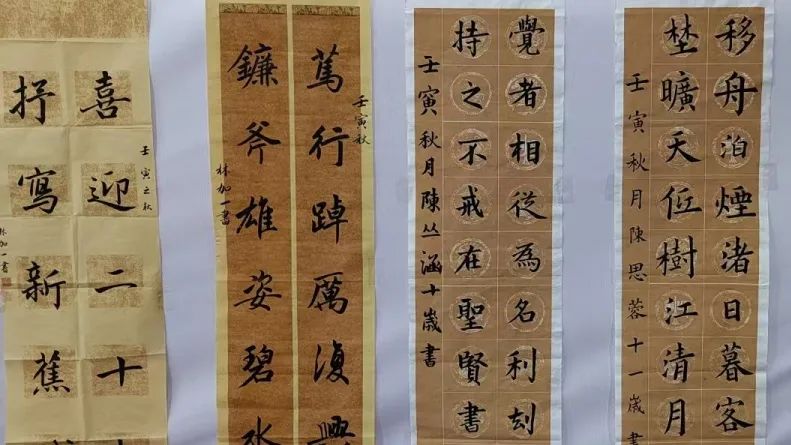 移舟泊煙渚日暮客
埜曠天低樹江清月
壬寅秋月陳思蓉十一歲書
覺者相從為名利刻
持之不戒在聖賢書
壬寅秋月陳丛涵十歲書
篤行踔厲復興
壬寅秋
鐮斧雄姿碧
林加一書
喜迎二十
壬寅之秋
抒寫新蕉
林加一書